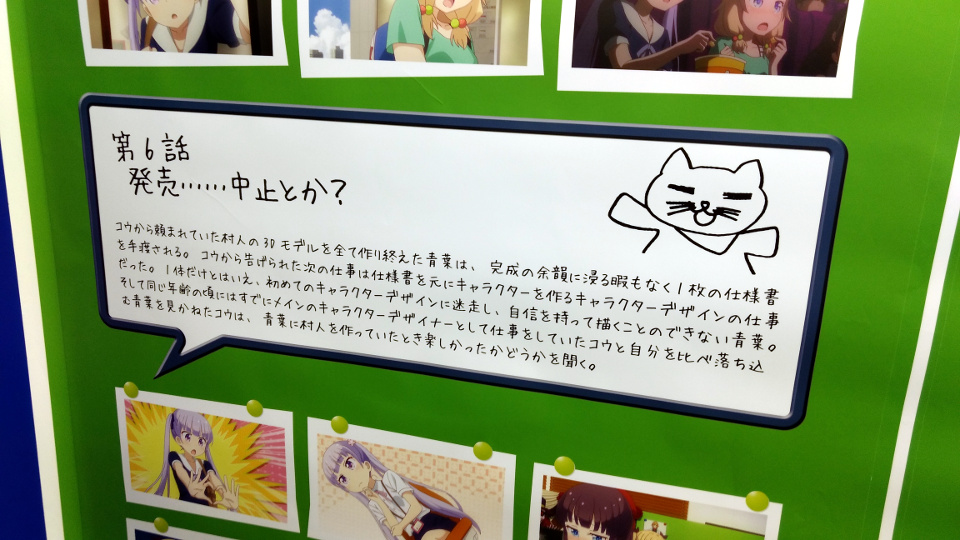 第6話
発売……中止とか？
コウから頼まれていた村人の3Dモデルを全て作り終えた青葉は、完成の余韻に浸る暇もなく1枚の仕様書
を手渡される。コウから告げられた次の仕事は仕様書を元にキャラクターを作るキャラクターデザインの仕事
だった。1体だけとはいえ、初めてのキャラクターデザインに迷走し、自信を持って描くことのできない青葉。
そして同じ年齢の頃にはすでにメインのキャラクターデザイナーとして仕事をしていたコウと自分を比べ落ち込
む青葉を見かねたコウは、青葉に村人を作っていたとき楽しかったかどうかを聞く。